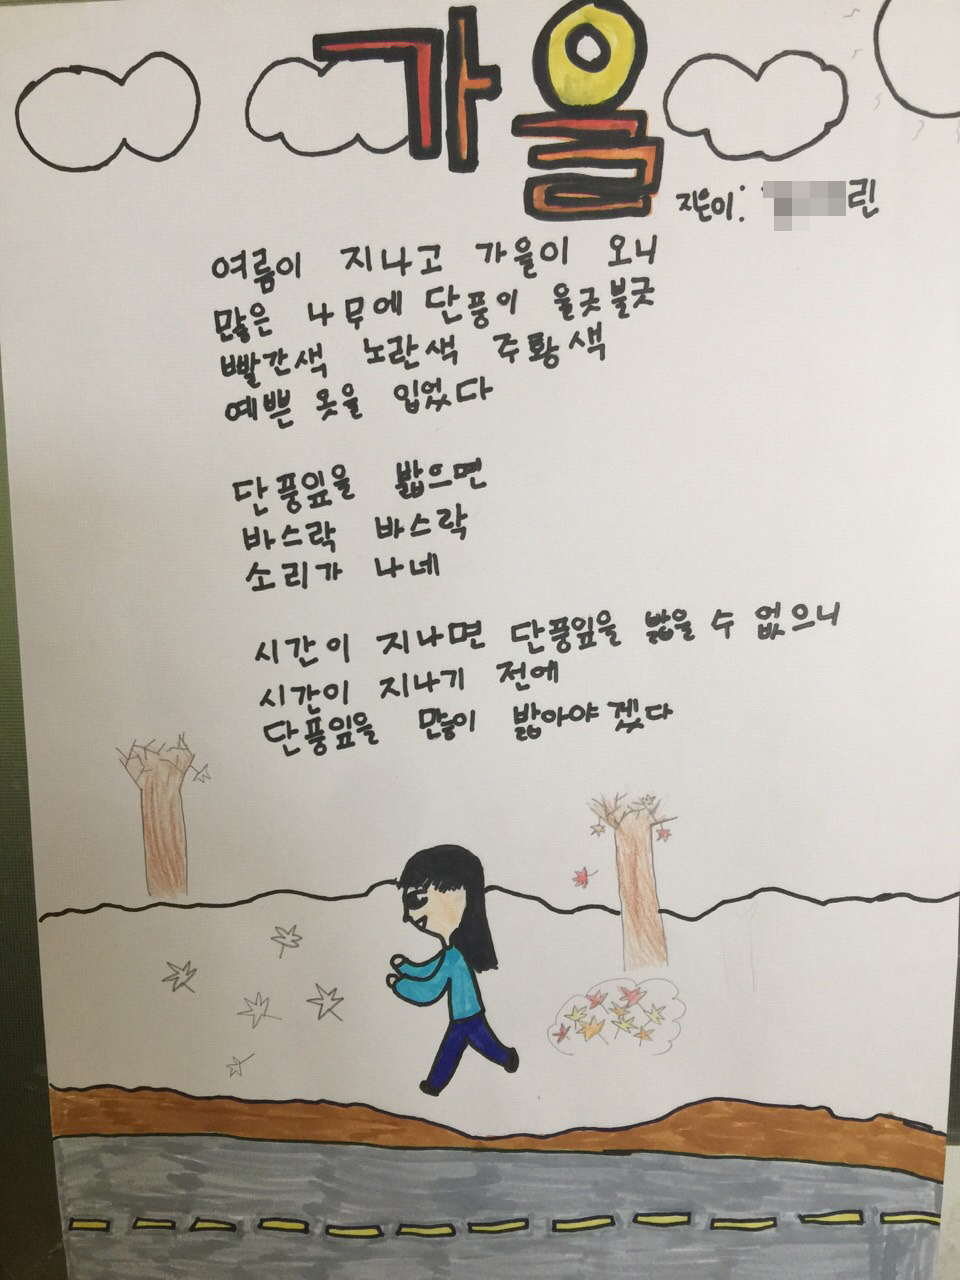 가을
지은이: 린
여름이 지나고 가을이 오니
많은 나무에 단풍이 울긋불긋
빨간색 노란색 주황색
예쁜 옷을 입었다
단풍잎을 밟으면
바스락 바스락
소리가 나네
시간이 지나면 단풍잎을 밟을 수 없으니
시간이 지나기 전에
단풍잎을 많이 밟아야겠다